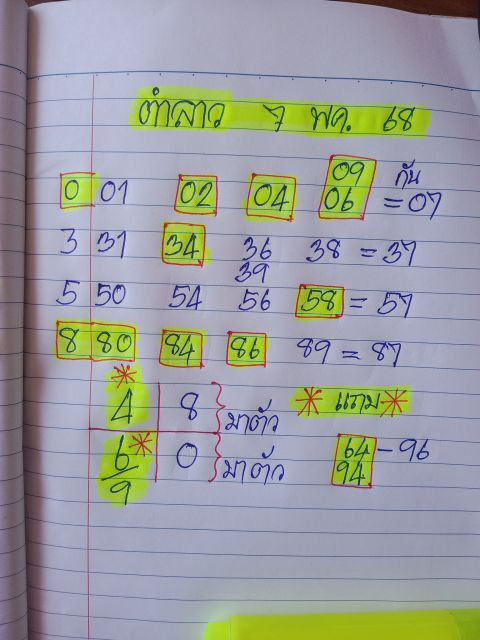 ตำลาว 7 พย. 68
0 01 02 04 09 กัน
06 = 07
3 31 34 36 38 = 37
39
5 50 54 56 58 = 57
8 80 84 86 89 = 87
* 4 8 } มาตัว * แถม *
6 * 0 } มาตัว 64 - 96
9 94